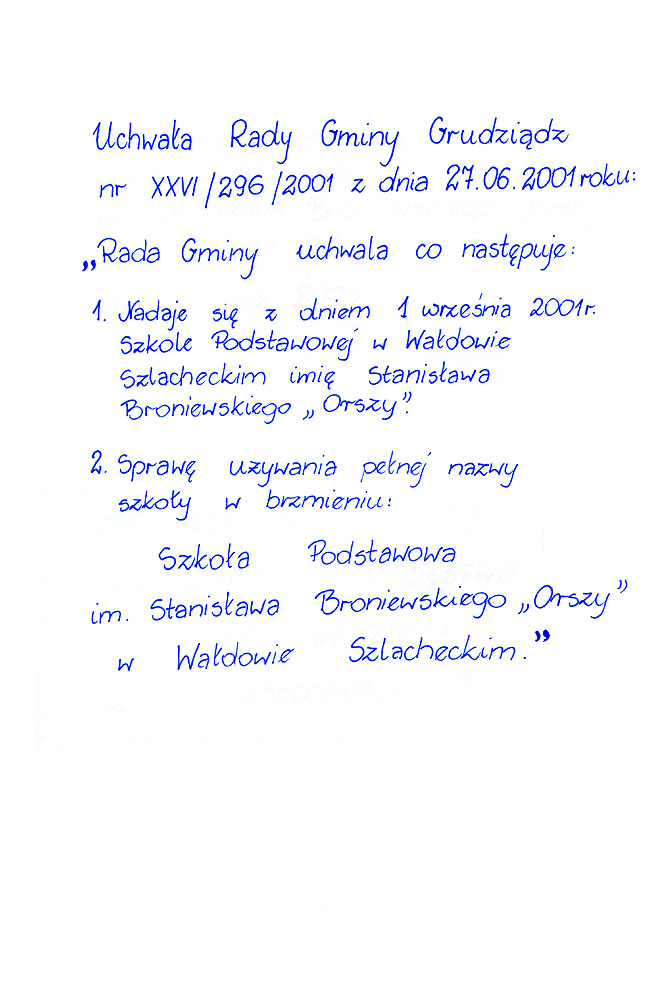 Uchwała Rady Gminy Grudziądz
nr XXVI/296/2001 z dnia 27.06.2001 roku:
„Rada Gminy uchwala co następuje:
1. Nadaje się z dniem 1 września 2001r.
Szkole Podstawowej w Wałdowie
Szlacheckim imię Stanisława
Broniewskiego „Orszy”.
2. Sprawę używania pełnej nazwy
szkoły w brzmieniu:
Szkoła Podstawowa
im. Stanisława Broniewskiego „Orszy”
w Wałdowie Szlacheckim.”